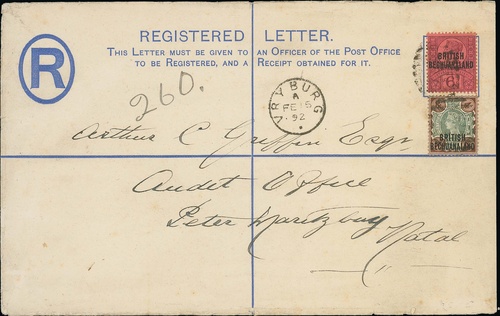 REGISTERED LETTER.
THIS LETTER MUST BE GIVEN TO AN OFFICER OF THE POST OFFICE
TO BE REGISTERED, AND A RECEIPT OBTAINED FOR IT.
R
260.
VRYBURG
A
FE 16
92
BRITISH
BECHUANALAND
BRITISH
BECHUANALAND
Arthur C Griffin Esqr
Audit Office
Peter Maritzburg
Natal